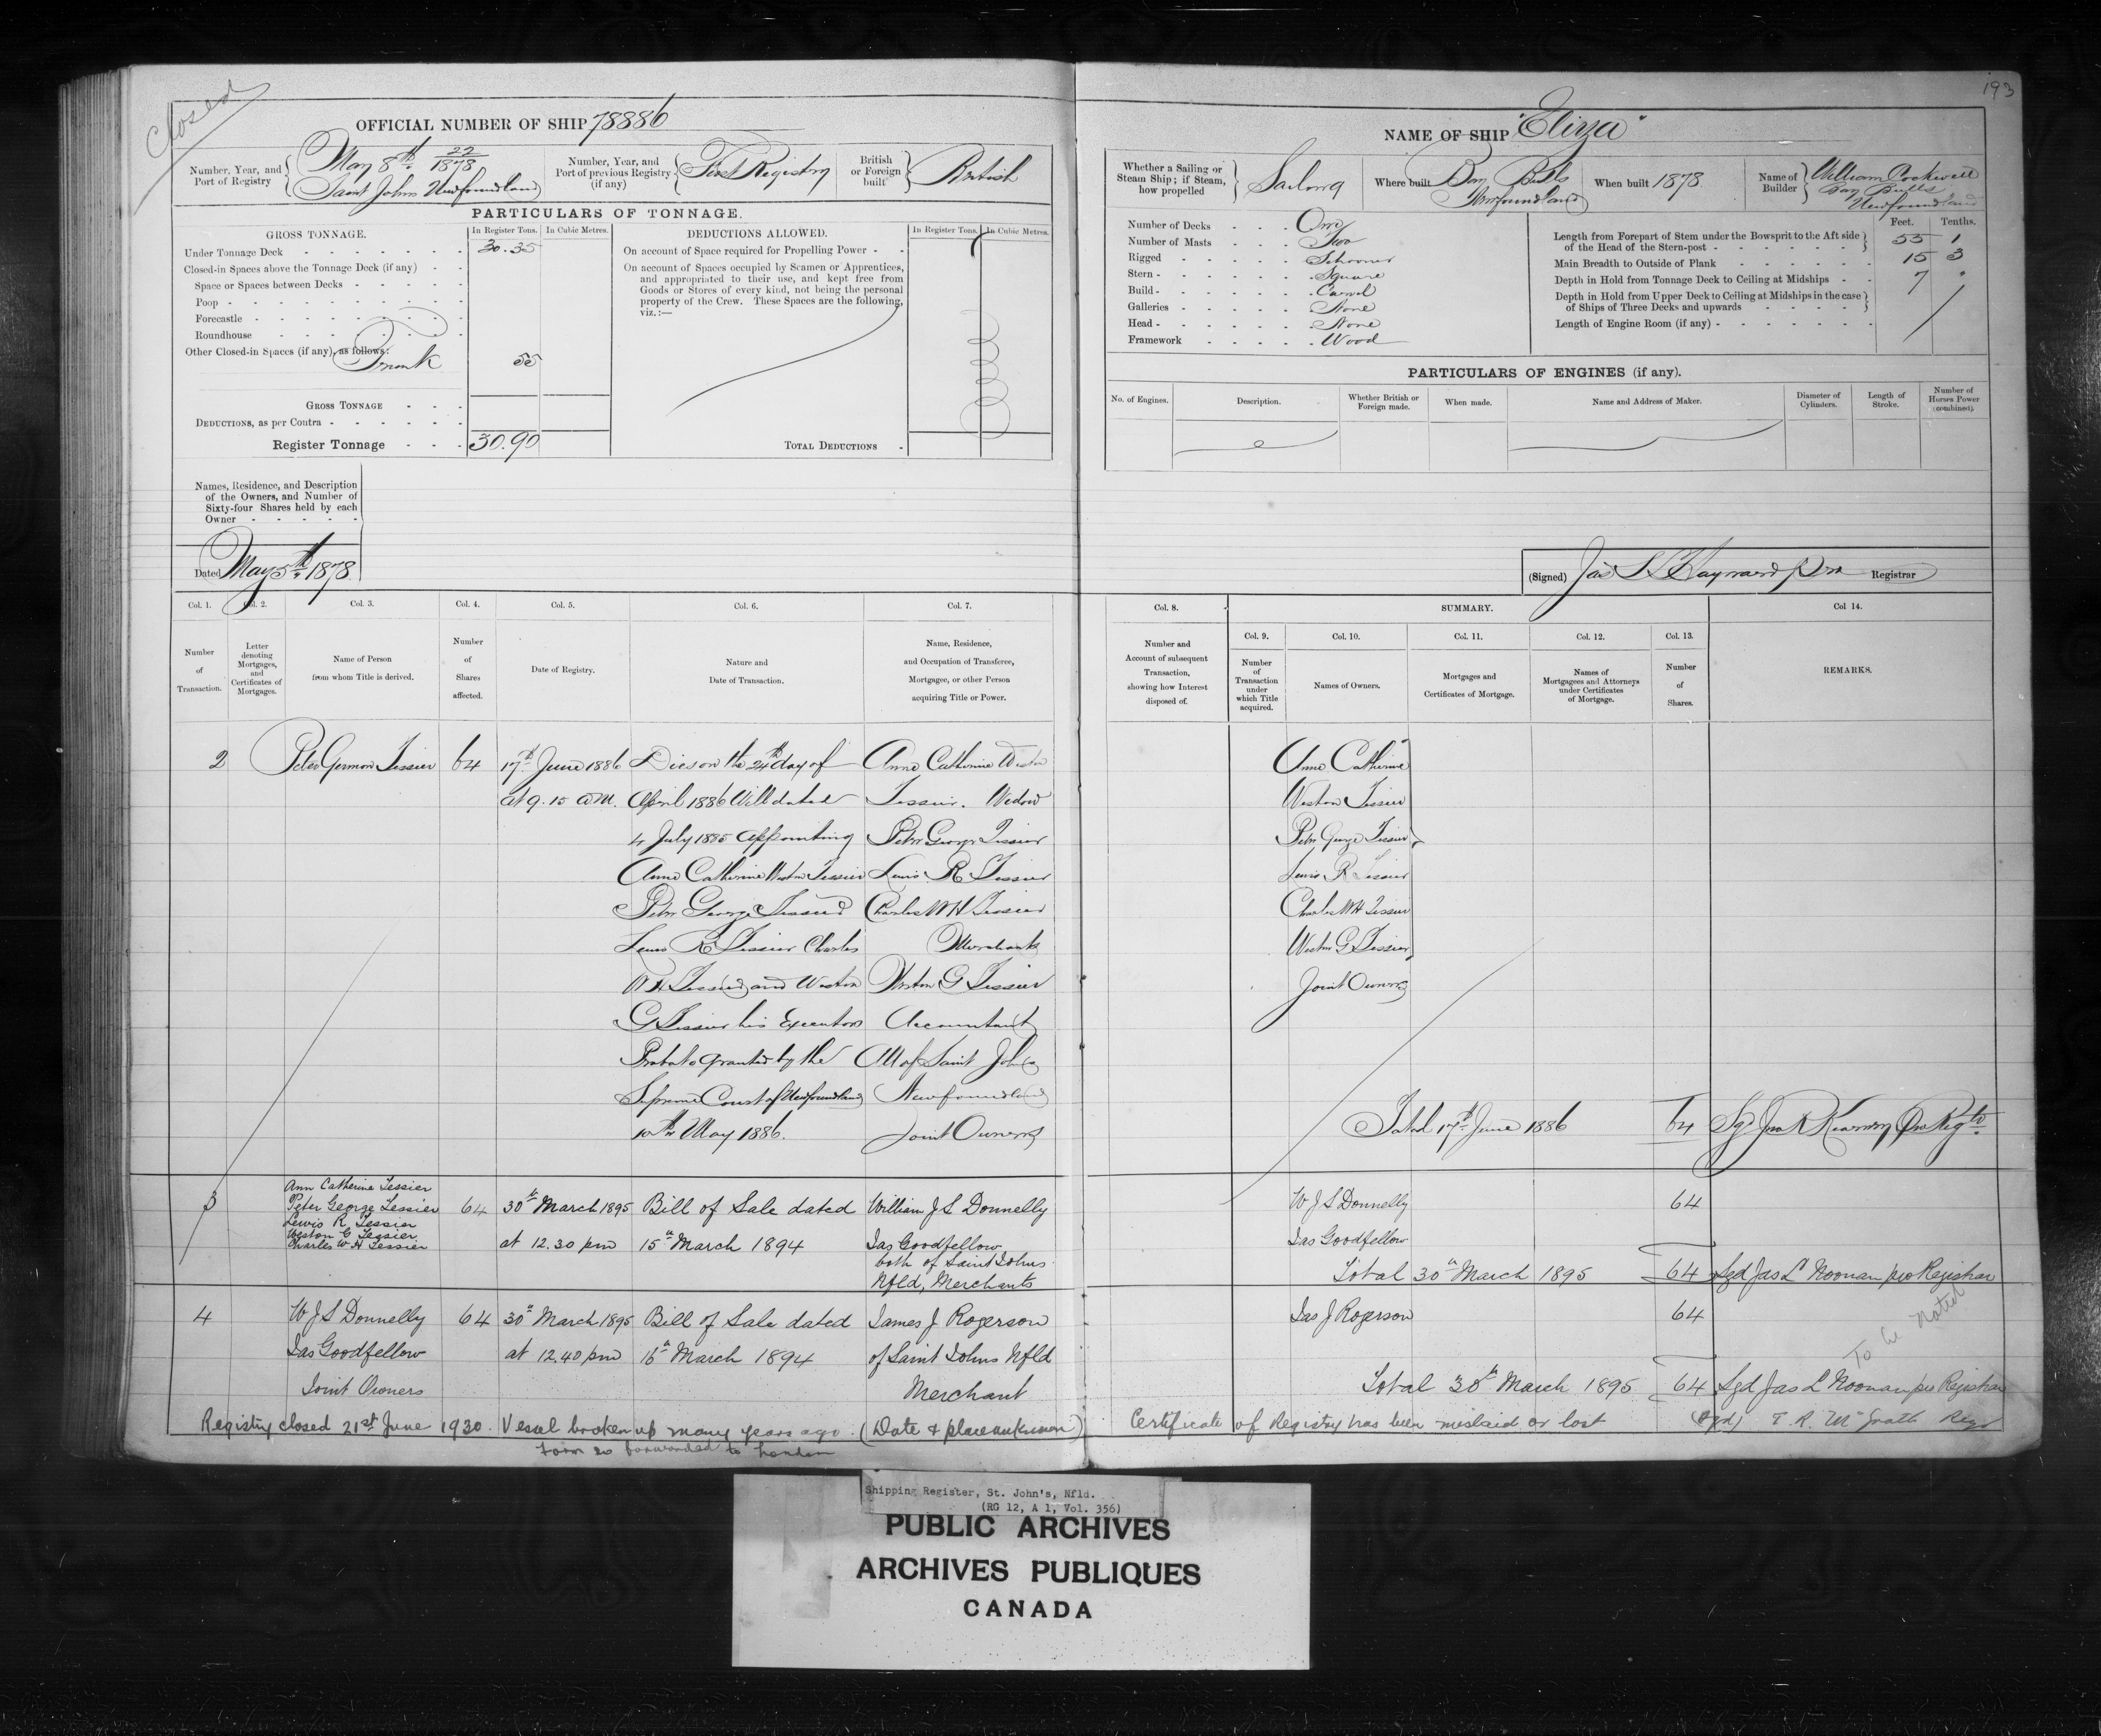 Closed
193
OFFICIAL NUMBER OF SHIP 78886
Number, Year, and Port of Registry
May 8th 22/1878
Saint Johns Newfoundland
Number, Year, and Port of previous Registry (if any)
First Registry
British or Foreign built
British
PARTICULARS OF TONNAGE.
GROSS TONNAGE.
In Register Tons.
In Cubic Metres.
DEDUCTIONS ALLOWED.
In Register Tons.
In Cubic Metres.
Under Tonnage Deck 30.35
Closed-in Spaces above the Tonnage Deck (if any)
Space or Spaces between Decks
Poop
Forecastle
Roundhouse
Other Closed-in Spaces (if any), as follows:
Trunk 55
GROSS TONNAGE
DEDUCTIONS, as per Contra
Register Tonnage 30.90
On account of Space required for Propelling Power
On account of Spaces occupied by Seamen or Apprentices,
and appropriated to their use, and kept free from
Goods or Stores of every kind, not being the personal
property of the Crew. These Spaces are the following,
viz.:—
TOTAL DEDUCTIONS
Names, Residence, and Description
of the Owners, and Number of
Sixty-four Shares held by each
Owner
Dated May 5th 1878
NAME OF SHIP "Eliza"
Whether a Sailing or Steam Ship; if Steam, how propelled
Sailing
Where built
Bay Bulls
Newfoundland
When built 1878
Name of Builder
William Cockwell
Bay Bulls
Newfoundland
Number of Decks One
Number of Masts Two
Rigged Schooner
Stern Square
Build Carvel
Galleries None
Head None
Framework Wood
Feet. Tenths.
Length from Forepart of Stem under the Bowsprit to the Aft side
of the Head of the Stern-post 55 1
Main Breadth to Outside of Plank 15 3
Depth in Hold from Tonnage Deck to Ceiling at Midships 7 "
Depth in Hold from Upper Deck to Ceiling at Midships in the case
of Ships of Three Decks and upwards
Length of Engine Room (if any)
PARTICULARS OF ENGINES (if any).
No. of Engines.
Description.
Whether British or Foreign made.
When made.
Name and Address of Maker.
Diameter of Cylinders.
Length of Stroke.
Number of Horses Power (combined).
(Signed) Jas S Hayward pro Registrar
Col. 1. Col. 2. Col. 3. Col. 4. Col. 5. Col. 6. Col. 7.
Number of Transaction.
Letter denoting Mortgages, and Certificates of Mortgages.
Name of Person from whom Title is derived.
Number of Shares affected.
Date of Registry.
Nature and Date of Transaction.
Name, Residence, and Occupation of Transferee, Mortgagee, or other Person acquiring Title or Power.
Col. 8.
SUMMARY.
Col 14.
Col. 9. Col. 10. Col. 11. Col. 12. Col. 13.
Number and Account of subsequent Transaction, showing how Interest disposed of.
Number of Transaction under which Title acquired.
Names of Owners.
Mortgages and Certificates of Mortgage.
Names of Mortgagees and Attorneys under Certificates of Mortgage.
Number of Shares.
REMARKS.
2
Peter Germon Tessier
64
17th June 1886
at 9.15 am.
Dies on the 24th day of
April 1886 Will dated
4 July 1885 appointing
Anne Catherine Weston Tessier
Peter George Tessier
Lewis R Tessier Charles
W H Tessier and Weston
G Tessier his Executors
Probate granted by the
Supreme Court of Newfoundland
10th May 1886.
Anne Catherine Weston
Tessier. Widow
Peter George Tessier
Lewis R Tessier
Charles W H Tessier
Merchants
Weston G Tessier
Accountant
All of Saint Johns
Newfoundland
Joint Owners
Anne Catherine
Weston Tessier
Peter George Tessier
Lewis R Tessier
Charles W H Tessier
Weston G Tessier
Joint Owners
Total 17th June 1886 64 Sgd Jno R Kearney Pro Regtr
3
Ann Catherine Tessier
Peter George Tessier
Lewis R Tessier
Weston G Tessier
Charles W H Tessier
64
30th March 1895
at 12.30 pm
Bill of Sale dated
15th March 1894
William J S Donnelly
Jas Goodfellow
both of Saint Johns
Nfld, Merchants
W J S Donnelly 64
Jas Goodfellow
Total 30th March 1895 64 Sgd Jas L Noonan pro Registrar
4
W J S Donnelly
Jas Goodfellow
Joint Owners
64
30th March 1895
at 12.40 pm
Bill of Sale dated
16th March 1894
James J Rogerson
of Saint Johns Nfld
Merchant
Jas J Rogerson 64
To be noted
Total 30th March 1895 64 Sgd Jas L Noonan pro Registrar
Registry closed 21st June 1930. Vessel broken up many years ago. (Date & place unknown) Certificate of Registry has been mislaid or lost (Sgd) T. R. McGrath Regr
Form 20 forwarded to London
Shipping Register, St. John's, Nfld.
(RG 12, A 1, Vol. 356)
PUBLIC ARCHIVES
ARCHIVES PUBLIQUES
CANADA